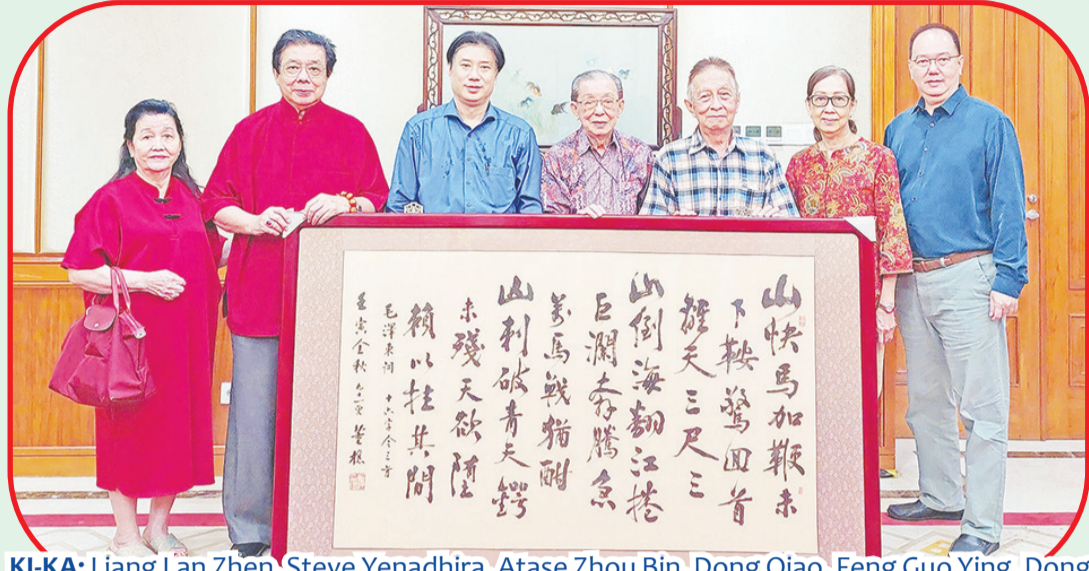 山快馬加鞭未
下鞍驚回首
離天三尺三
山倒海翻江捲
巨瀾奔騰急
萬馬戰猶酣
山刺破青天鍔
未殘天欲墮
賴以拄其間
毛澤東詞 十六字令三首
壬寅金秋 九一叟 董樵
KI-KA: Liang Lan Zhen, Steve Yenadhira, Atase Zhou Bin, Dong Qiao, Feng Guo Ying, Dong